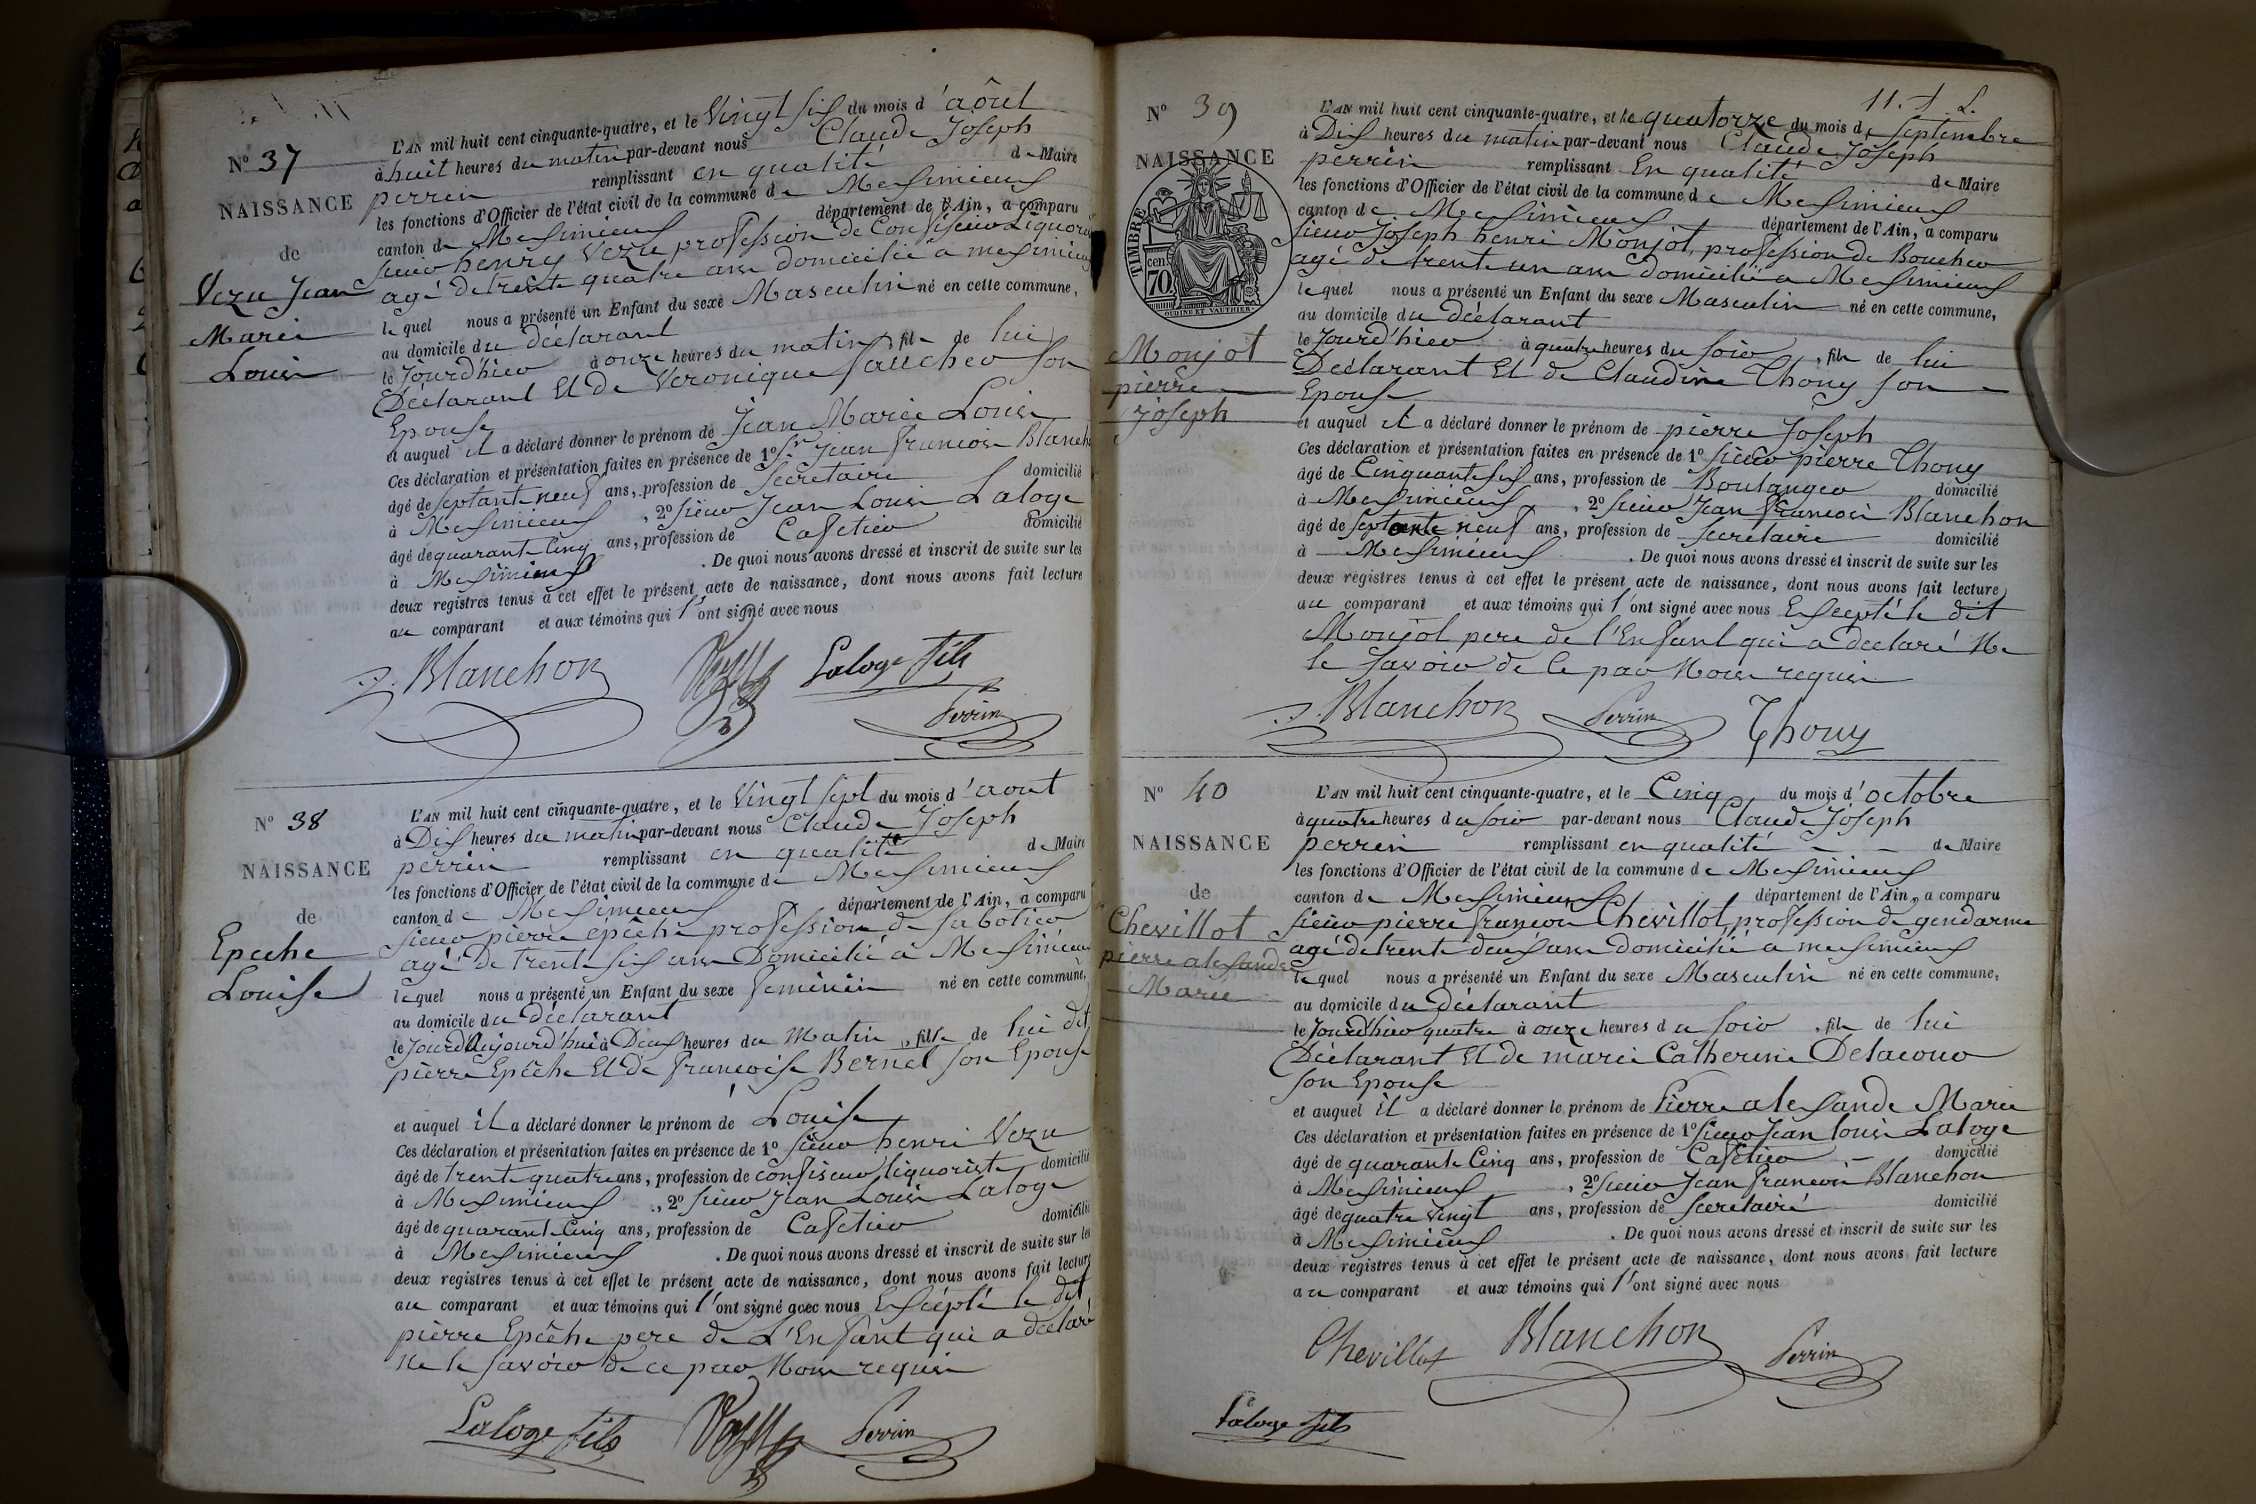 N° 37
NAISSANCE
de
Vezu Jean
Marie
Louis
L'AN mil huit cent cinquante-quatre, et le Vingt six du mois d'aôut
à huit heures du matin par-devant nous Claude Joseph
perrin remplissant en qualité de Maire
les fonctions d'Officier de l'état civil de la commune de Meximieux
canton de Meximieux département de l'Ain, a comparu
sieur henry Vezu profession de Confiseur Liquoriste
agé de trente quatre ans domicilié à meximieux
lequel nous a présenté un Enfant du sexe Masculin né en cette commune,
au domicile du déclarant
le Jourd'hier à onze heures du matin, fils de lui
Déclarant Et De Veronique faucher son
Epouse
et auquel il a déclaré donner le prénom de Jean Marie Louis
Ces déclaration et présentation faites en présence de 1° Sr. Jean francois Blanchon
âgé de septante neuf ans, profession de Secretaire domicilié
à Meximieux, 2° sieur Jean Louis Laloge
âgé de quarante Cinq ans, profession de Cafetier domicilié
à Meximieux. De quoi nous avons dressé et inscrit de suite sur les
deux registres tenus à cet effet le présent acte de naissance, dont nous avons fait lecture
au comparant et aux témoins qui l'ont signé avec nous
Blanchon Laloge fils
Perrin
N° 38
NAISSANCE
de
Epeche
Louise
L'AN mil huit cent cinquante-quatre, et le Vingt sept du mois d'aout
à Dix heures du matin par-devant nous Claude Joseph
perrin remplissant en qualité de Maire
les fonctions d'Officier de l'état civil de la commune de Meximieux
canton de Meximieux département de l'Ain, a comparu
sieur pierre epêche profession de sabotier
agé De trente six ans Domicilié à Meximieux
lequel nous a présenté un Enfant du sexe feminin né en cette commune,
au domicile du déclarant
le Jourd Aujourd'hui à Deux heures du Matin, fille de lui dit
pierre Epêche Et De francoise Bernel son Epouse
et auquel il a déclaré donner le prénom de Louise
Ces déclaration et présentation faites en présence de 1° sieur henri Vezu
âgé de trente quatre ans, profession de confiseur liquoriste domicilié
à Meximieux, 2° sieur Jean Louis Laloge
âgé de quarante Cinq ans, profession de Cafetier domicilié
à Meximieux. De quoi nous avons dressé et inscrit de suite sur les
deux registres tenus à cet effet le présent acte de naissance, dont nous avons fait lecture
au comparant et aux témoins qui l'ont signé avec nous Excépté le dit
pierre Epêche pere de L'Enfant qui a déclaré
ne le savoir de ce par Nous requis
Laloge fils Perrin
N° 39
NAISSANCE
TIMBRE
cen
70
OUDINÉ ET VAUTHIER
Monjot
pierre
joseph
L'AN mil huit cent cinquante-quatre, et le quatorze du mois de Septembre
à Dix heures du matin par-devant nous Claude Joseph
perrin remplissant En qualité de Maire
les fonctions d'Officier de l'état civil de la commune de Meximieux
canton de Meximieux département de l'Ain, a comparu
sieur Joseph henri Monjot, profession de Boucher
agé de trente un ans domicilié a Meximieux
lequel nous a présenté un Enfant du sexe Masculin né en cette commune,
au domicile du déclarant
le Jourd'hier à quatre heures du soir, fils de lui
Déclarant Et de Claudine Thony son
Epouse
et auquel il a déclaré donner le prénom de pierre Joseph
Ces déclaration et présentation faites en présence de 1° sieur pierre Thony
âgé de Cinquante six ans, profession de Boulanger domicilié
à Meximieux, 2° sieur Jean francois Blanchon
âgé de septante neuf ans, profession de secretaire domicilié
à Meximieux. De quoi nous avons dressé et inscrit de suite sur les
deux registres tenus à cet effet le présent acte de naissance, dont nous avons fait lecture
au comparant et aux témoins qui l'ont signé avec nous Excepté le dit
Monjot pere de l'Enfant qui a déclaré Ne
le savoir de Ce par Nous requis
Blanchon Perrin Thony
N° 40
NAISSANCE
de
Chevillot
pierre alexandre
Marie
L'AN mil huit cent cinquante-quatre, et le Cinq du mois d'octobre
à quatre heures du soir par-devant nous Claude Joseph
perrin remplissant en qualité de Maire
les fonctions d'Officier de l'état civil de la commune de Meximieux
canton de Meximieux département de l'Ain, a comparu
sieur pierre françois Chevillot, profession de gendarme
agé de trente deux ans domicilié a meximieux
lequel nous a présenté un Enfant du sexe Masculin né en cette commune,
au domicile du déclarant
le Jourd'hier quatre à onze heures du soir, fils de lui
Déclarant Et de marie Catherine Delacour
son Epouse
et auquel il a déclaré donner le prénom de Pierre alexandre Marie
Ces déclaration et présentation faites en présence de 1° sieur Jean louis Laloge
âgé de quarante Cinq ans, profession de Cafetier domicilié
à Meximieux, 2° sieur Jean francois Blanchon
âgé de quatre vingt ans, profession de secretaire domicilié
à Meximieux. De quoi nous avons dressé et inscrit de suite sur les
deux registres tenus à cet effet le présent acte de naissance, dont nous avons fait lecture
au comparant et aux témoins qui l'ont signé avec nous
Chevillot Blanchon Perrin
Laloge fils